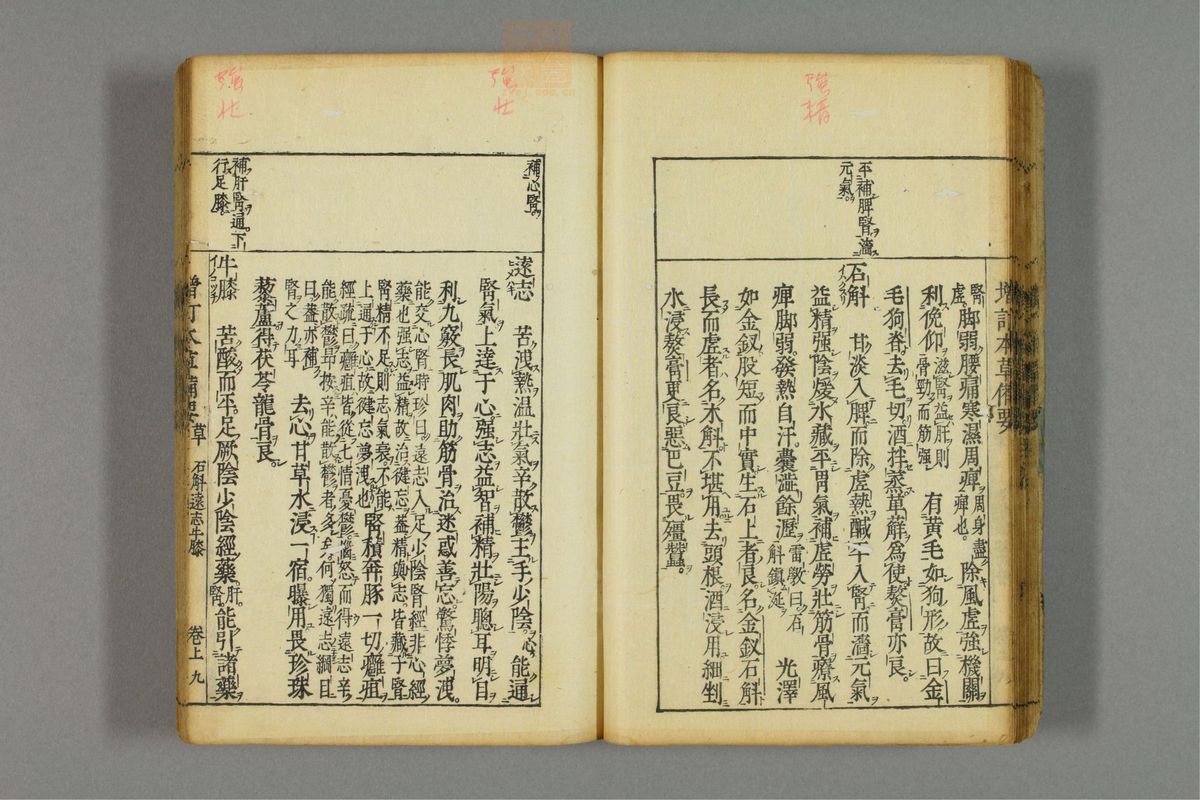 強精
平補脾腎濇
元氣
增訂本草備要
腎虛脚弱腰痛寒濕周痺周身盡痺也除風虛強機關
利俛仰滋腎益肝則骨勁而筋强有黃毛如狗形故曰金
毛狗脊去毛切酒拌蒸萆薢爲使熬膏亦良
石斛 甘淡入脾而除虛熱鹹平入腎而濇元氣
益精强陰煖水藏平胃氣補虛勞壯筋骨療風
痺脚弱發熱自汗囊濇餘瀝雷斆曰石斛鎮涎光澤
如金釵股短而中實生石上者良名金釵石斛
長而虛者名水斛不堪用去頭根酒浸用細剉
水浸熬膏更良惡巴豆畏殭蠶
強壯
強壯
補心腎
補肝腎通下
行足膝
遠志 苦洩熱温壯氣辛散鬱主手少陰心能通
腎氣上達于心强志益智補精壯陽聰耳明目
利九竅長肌肉助筋骨治迷惑善忘驚悸夢洩
能交心腎時珍曰遠志入足少陰腎經非心經
藥也强志益精故治健忘蓋精與志皆藏于腎
腎精不足則志氣衰不能
上通于心故健忘夢洩也腎積奔豚一切癰疽
經疏曰癰疽皆從七情憂鬱惱怒而得遠志辛
能散鬱昂按辛能散鬱者多矣何獨遠志綱目
曰蓋亦補
腎之力耳去心甘草水浸一宿曝用畏珍珠
藜蘆得茯苓龍骨良
牛膝 苦酸而平足厥陰少陰經藥肝腎能引諸藥
增訂本草備要 草 石斛遠志牛膝 卷上 九